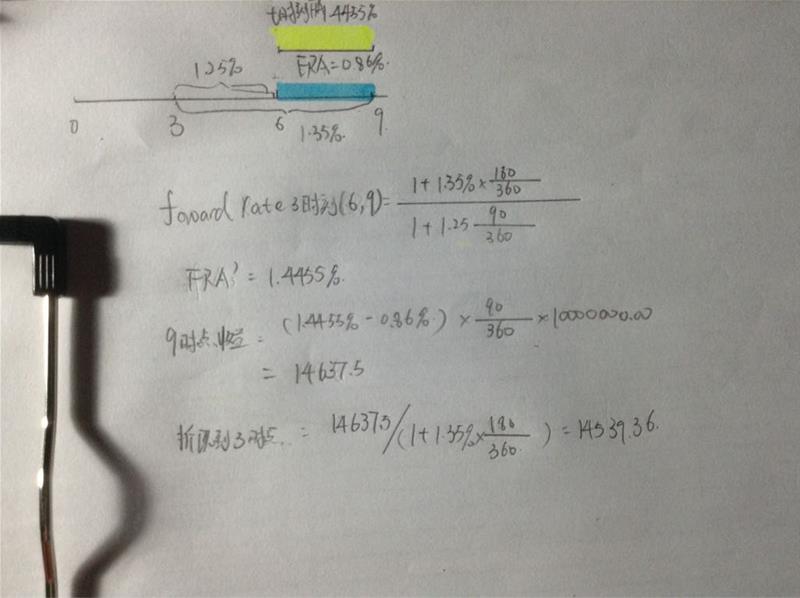 1.4455%
FRA=0.86%.
1.25%
0 3 6 9
1.35%.
forward rate 3时刻(6,9)= 1+1.35%×180/360 / 1+1.25 90/360
FRA' = 1.4455%.
9时点收益 = (1.4455%-0.86%)×90/360×10000000.00
= 14637.5
折现到3时点. = 14637.5/(1+1.35%×180/360)=14539.36.